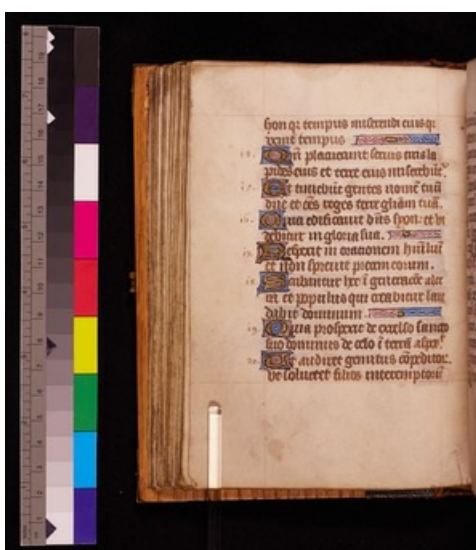 syon qr tempus miserendi eius qr
venit tempus
14. Qm placuerunt seruis tuis la
pides eius et terre eius miserebūt̄.
15. Et timebūt gentes nomē tuū
dn̄e et oēs reges terre gl̄iam tuā.
16. Quia edificauit dn̄s syon: et vi
debitur in gloria sua.
17. Respexit in orationem humiliū
et non spreuit precem eorum.
18. Scribantur hec ī generacōe alte
ra et populus qui creabitur lau
dabit dominum.
19. Quia prospexit de excelso sancto
suo dominus de celo ī terrā aspex̄.
20. Vt audiret gemitus cōpeditor̄.
vt solueret filios interemptorū